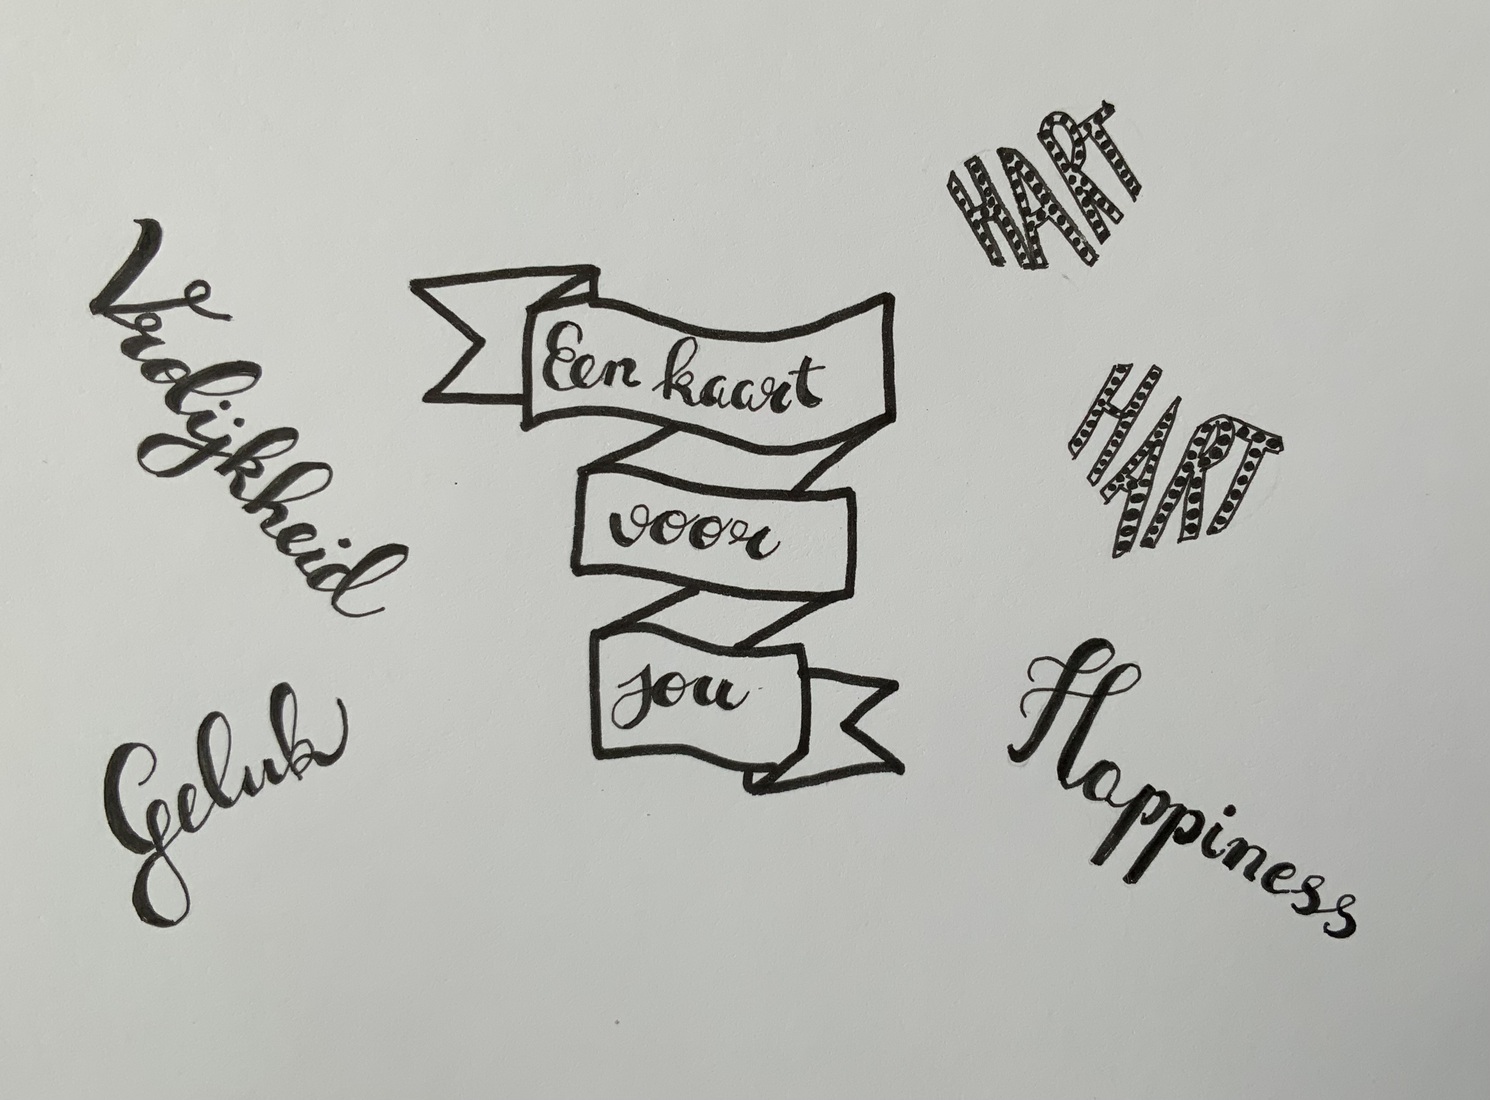 Vrolijkheid
Geluk
Een kaart
voor
jou
HART
HART
Happiness